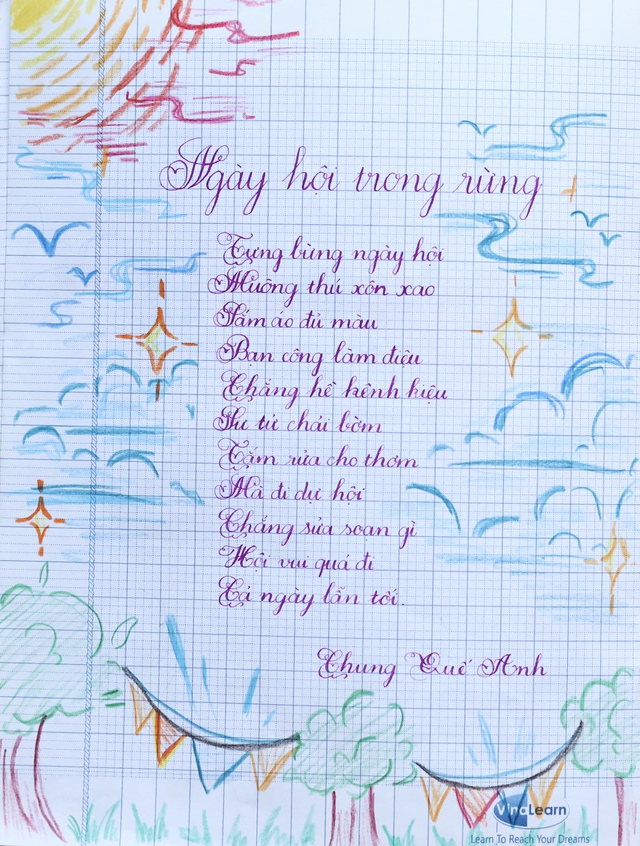 Ngày hội trong rừng
Tưng bừng ngày hội
Muông thú xôn xao
Sắm áo đủ màu
Ban công làm điệu
Chẳng hề kênh kiệu
Sư tử chải bờm
Tắm rửa cho thơm
Mà đi dự hội
Chẳng sửa soạn gì
Hội vui quá đi
Cả ngày lẫn tối.
Chung Quế Anh
VinaLearn
Learn To Reach Your Dreams